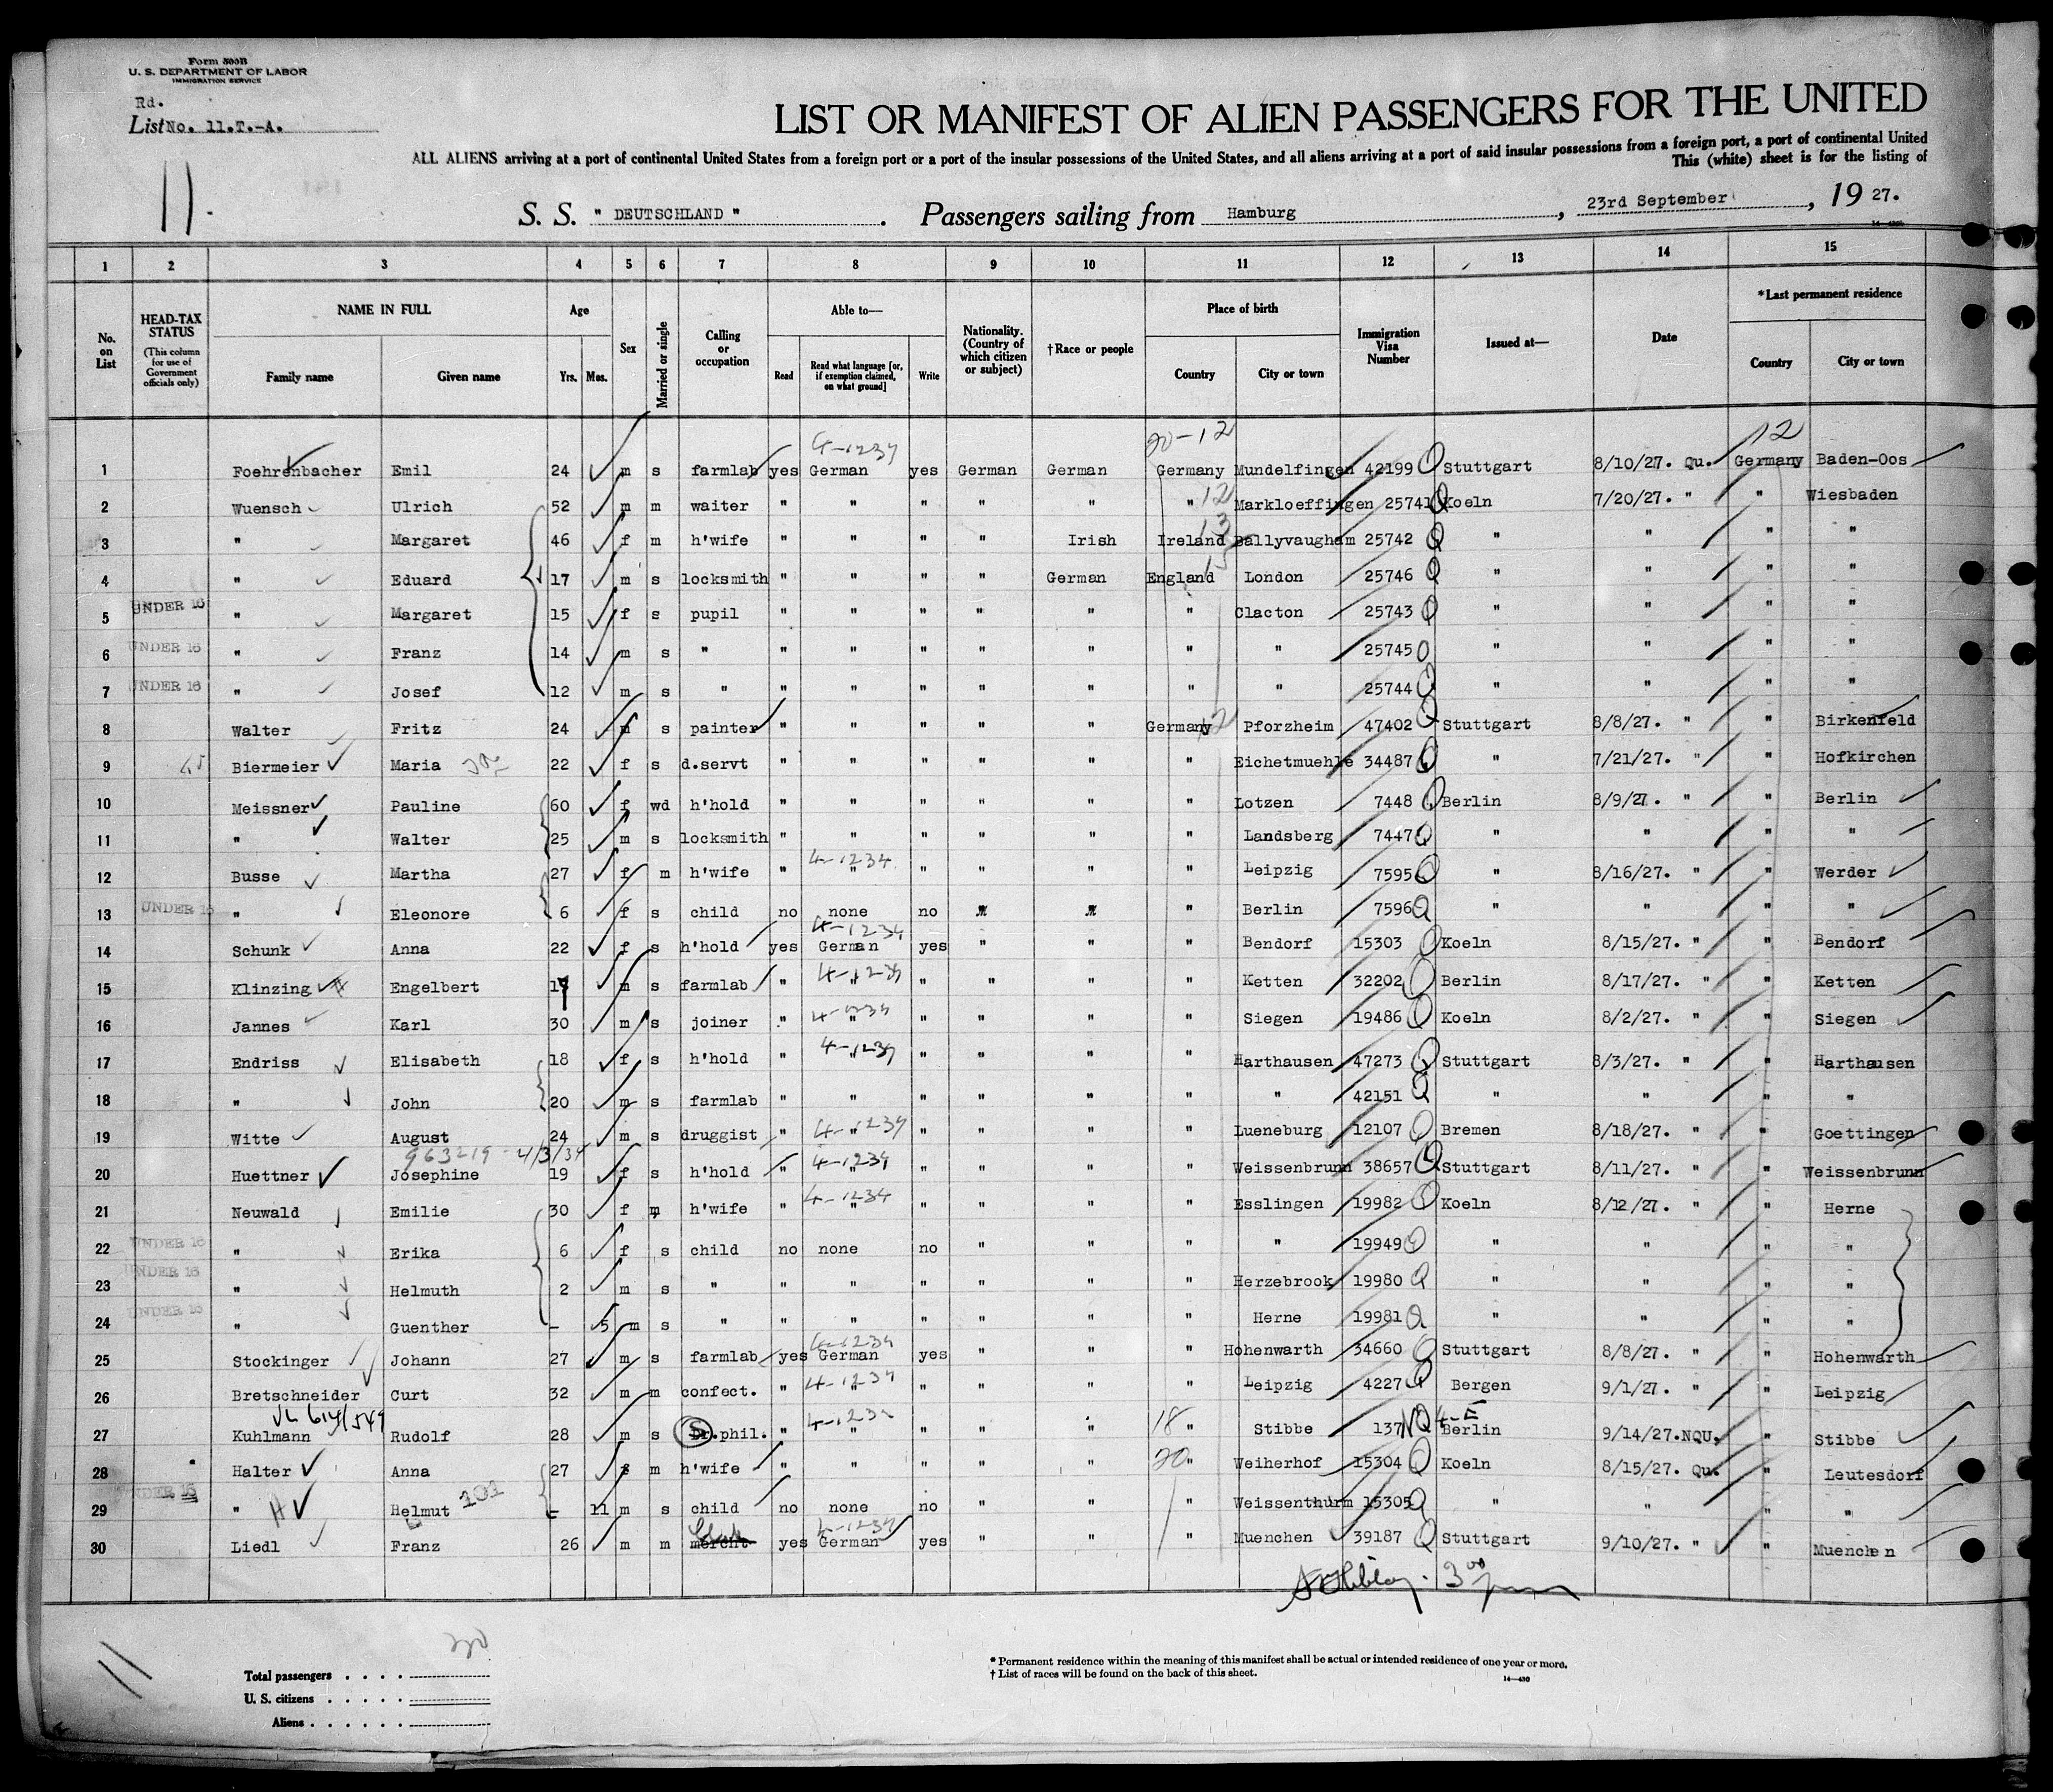 Form 500B
U. S. DEPARTMENT OF LABOR
IMMIGRATION SERVICE
Rd.
List No. 11.T.-A.
LIST OR MANIFEST OF ALIEN PASSENGERS FOR THE UNITED
ALL ALIENS arriving at a port of continental United States from a foreign port or a port of the insular possessions of the United States, and all aliens arriving at a port of said insular possessions from a foreign port, a port of continental United
This (white) sheet is for the listing of
11.
S. S. " DEUTSCHLAND " . Passengers sailing from Hamburg , 23rd September , 19 27.
1 2 3 4 5 6 7 8 9 10 11 12 13 14 15
No. on List HEAD-TAX STATUS (This column for use of Government officials only) NAME IN FULL Family name Given name Age Yrs. Mos. Sex Married or single Calling or occupation Able to— Read Read what language [or, if exemption claimed, on what ground] Write Nationality. (Country of which citizen or subject) †Race or people Place of birth Country City or town Immigration Visa Number Issued at— Date *Last permanent residence Country City or town
4-1234 20-12 12
1 Foehrenbacher Emil 24 m s farmlab yes German yes German German Germany Mundelfingen 42199 Q Stuttgart 8/10/27. Qu. Germany Baden-Oos
2 Wuensch Ulrich 52 m m waiter " " " " " " 12 Markloeffingen 25741 Q Koeln 7/20/27. " " Wiesbaden
3 " Margaret 46 f m h'wife " " " " Irish Ireland 13 Ballyvaugham 25742 Q " " " "
4 " Eduard 17 m s locksmith " " " " German England 15 London 25746 Q " " " "
5 UNDER 16 " Margaret 15 f s pupil " " " " " " Clacton 25743 Q " " " "
6 UNDER 16 " Franz 14 m s " " " " " " " " 25745 Q " " " "
7 UNDER 16 " Josef 12 m s " " " " " " " " 25744 Q " " " "
8 Walter Fritz 24 m s painter " " " " " Germany 12 Pforzheim 47402 Q Stuttgart 8/8/27. " " Birkenfeld
9 Biermeier Maria 22 f s d.servt " " " " " " Eichetmuehle 34487 Q " 7/21/27. " " Hofkirchen
10 Meissner Pauline 60 f wd h'hold " " " " " " Lotzen 7448 Q Berlin 8/9/27. " " Berlin
11 " Walter 25 m s locksmith " " " " " " Landsberg 7447 Q " " " "
12 Busse Martha 27 f m h'wife " 4-1234 " " " " " Leipzig 7595 Q " 8/16/27. " " Werder
13 UNDER 16 " Eleonore 6 f s child no none no " " " Berlin 7596 Q " " " "
14 Schunk Anna 22 f s h'hold yes 4-1234 German yes " " " Bendorf 15303 Q Koeln 8/15/27. " " Bendorf
15 Klinzing Engelbert 17 m s farmlab " 4-1234 " " " " " Ketten 32202 Q Berlin 8/17/27. " " Ketten
16 Jannes Karl 30 m s joiner " 4-1234 " " " " " Siegen 19486 Q Koeln 8/2/27. " " Siegen
17 Endriss Elisabeth 18 f s h'hold " 4-1234 " " " " " Harthausen 47273 Q Stuttgart 8/3/27. " " Harthausen
18 " John 20 m s farmlab " " " " " " " 42151 Q " " " "
19 Witte August 24 m s druggist " 4-1234 " " " " " Lueneburg 12107 Q Bremen 8/18/27. " " Goettingen
963219 4/3/34
20 Huettner Josephine 19 f s h'hold " 4-1234 " " " " " Weissenbrunn 38657 Q Stuttgart 8/11/27. " " Weissenbrunn
21 Neuwald Emilie 30 f m h'wife " 4-1234 " " " " " Esslingen 19982 Q Koeln 8/12/27. " " Herne
22 UNDER 16 " Erika 6 f s child no none no " " " " 19949 Q " " " "
23 UNDER 16 " Helmuth 2 m s " " " " " " " Herzebrook 19980 Q " " " "
24 UNDER 16 " Guenther - 5 m s " " " " " " " Herne 19981 Q " " " "
25 Stockinger Johann 27 m s farmlab yes 4-1234 German yes " " " Hohenwarth 34660 Q Stuttgart 8/8/27. " " Hohenwarth
26 Bretschneider Curt 32 m m confect. " 4-1234 " " " " " Leipzig 4227 Q Bergen 9/1/27. " " Leipzig
VL 614/549
27 Kuhlmann Rudolf 28 m s Dr.phil. " 4-1234 " " " " 18 " Stibbe 137 NQ 4-E Berlin 9/14/27. NQU. " Stibbe
28 Halter Anna 27 f m h'wife " " " " " 20 " Weiherhof 15304 Q Koeln 8/15/27. Qu. " Leutesdorf
29 UNDER 16 " H Helmut 101 - 11 m s child no none no " " " Weissenthurm 15305 Q " " " "
30 Liedl Franz 26 m m mercht Clerk yes 4-1234 German yes " " " Muenchen 39187 Q Stuttgart 9/10/27. " " Muenchen
11
30
Total passengers . . . .
U. S. citizens . . . . .
Aliens . . . . . .
* Permanent residence within the meaning of this manifest shall be actual or intended residence of one year or more.
† List of races will be found on the back of this sheet.
14—430